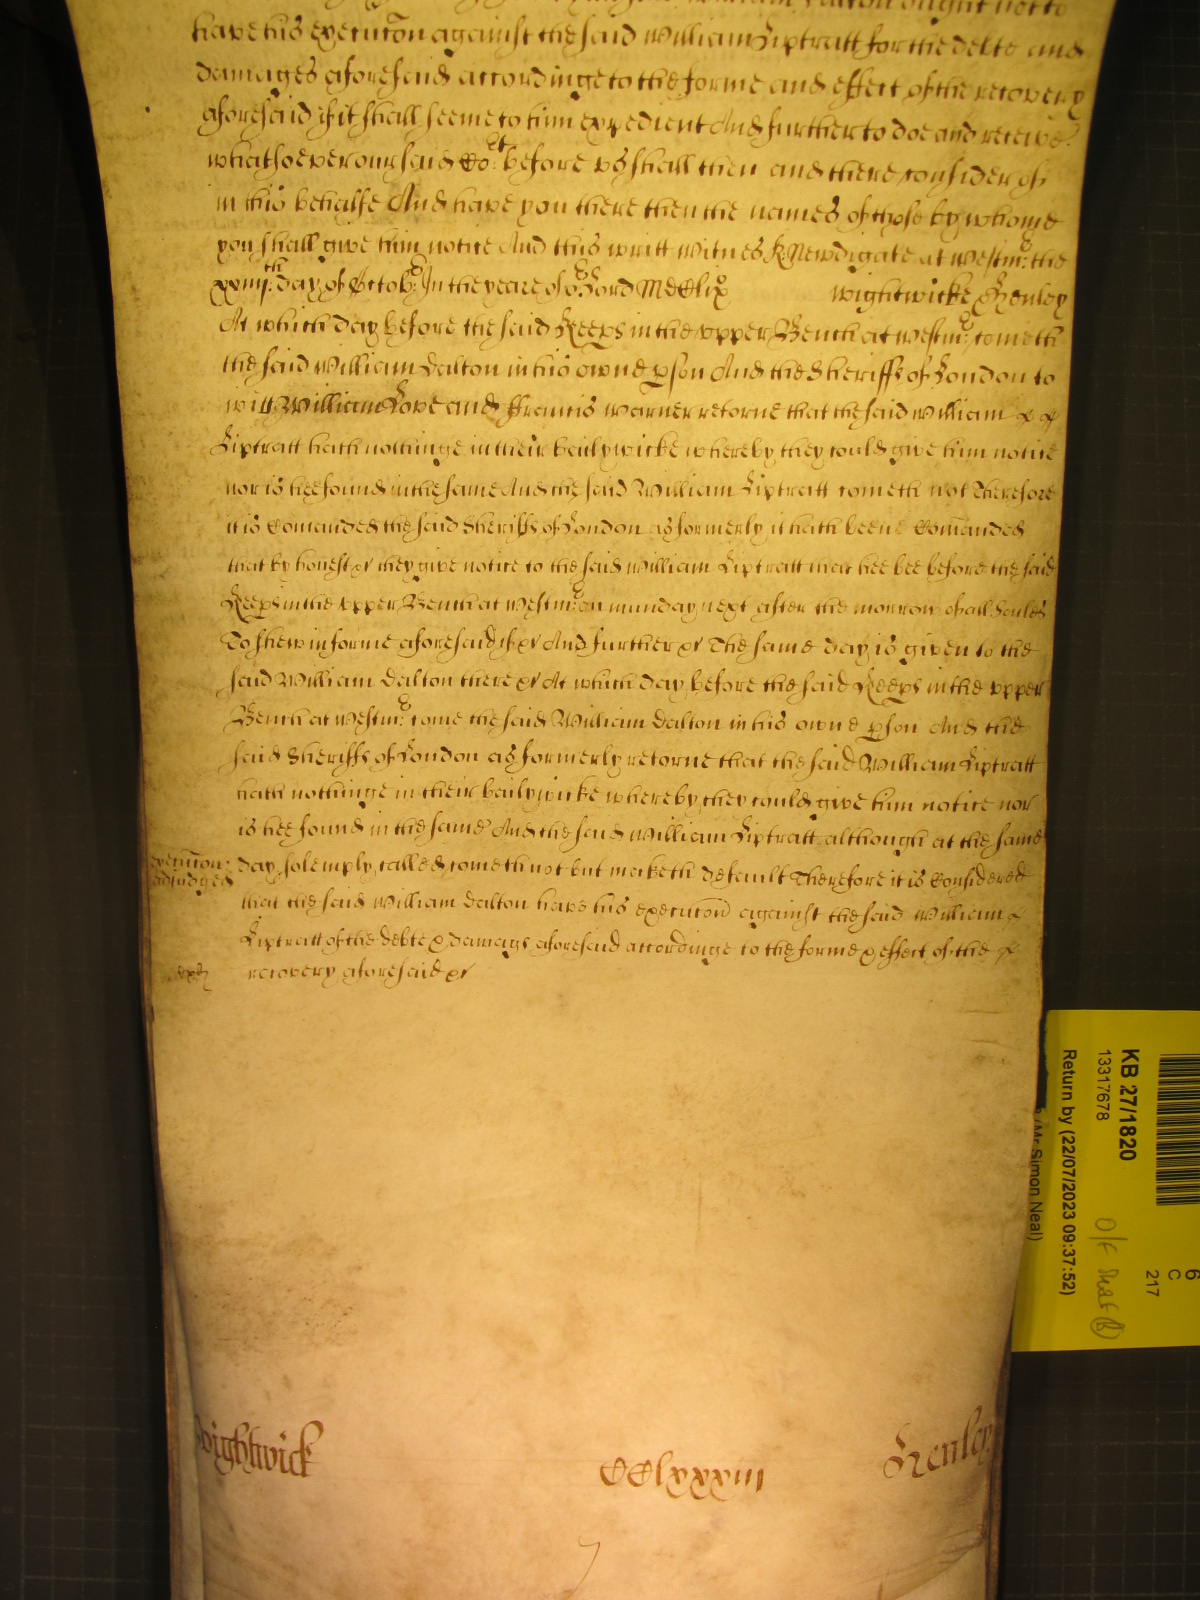 William Dalton ought not to
have his execucōn against the said William Liptratt for the debte and
damages aforesaid accordinge to the forme and effect of the recovery
aforesaid if it shall seeme to him expedient And further to doe and receive
whatsoever our said Cort: before us shall then and there consider of
in this behalfe And have you there then the names of those by whome
you shall give him notice And this writt Witnes R: Newdigate at Westmr: the
xxiiijth: day of Octobr: In the yeare of or: Lord MDClix Wightwicke & Henley
At which day before the said Keeps in the upper Bench at Westmr: cometh
the said William Dalton in his owne pson And the Sheriffs of London to
witt William Love and ffrancis Warner retorne that the said William
Liptratt hath nothinge in their bailywicke whereby they could give him notice
nor is hee found in the same And the said William Liptratt cometh not Therefore
it is Comanded the said Sheriffs of London as formerly it hath beene Comanded
that by honest &c they give notice to the said William Liptratt that hee bee before the said
Keeps in the upper Bench at Westmr: on munday next after the morrow of all Soules
To shew in forme aforesaid if &c And further &c The same day is given to the
said William Dalton there &c At which day before the said Keeps in the upper
Bench at Westmr: come the said William Dalton in his owne pson And the
said Sheriffs of London as formerly retorne that the said William Liptratt
hath nothinge in their bailywicke whereby they could give him notice nor
is hee found in the same And the said William Liptratt although at the same
execucōn: day solemply called cometh not but maketh default Therefore it is Considered
adjudged
that the said William Dalton have his execucōn against the said William
Liptratt of the debte & damags aforesaid accordinge to the forme & effect of the
recovery aforesaid &c
Wightwick CClxxxiii Henley
KB 27/1820
13317678
Return by (22/07/2023 09:37:52)
(Mr Simon Neal)
6
C
217